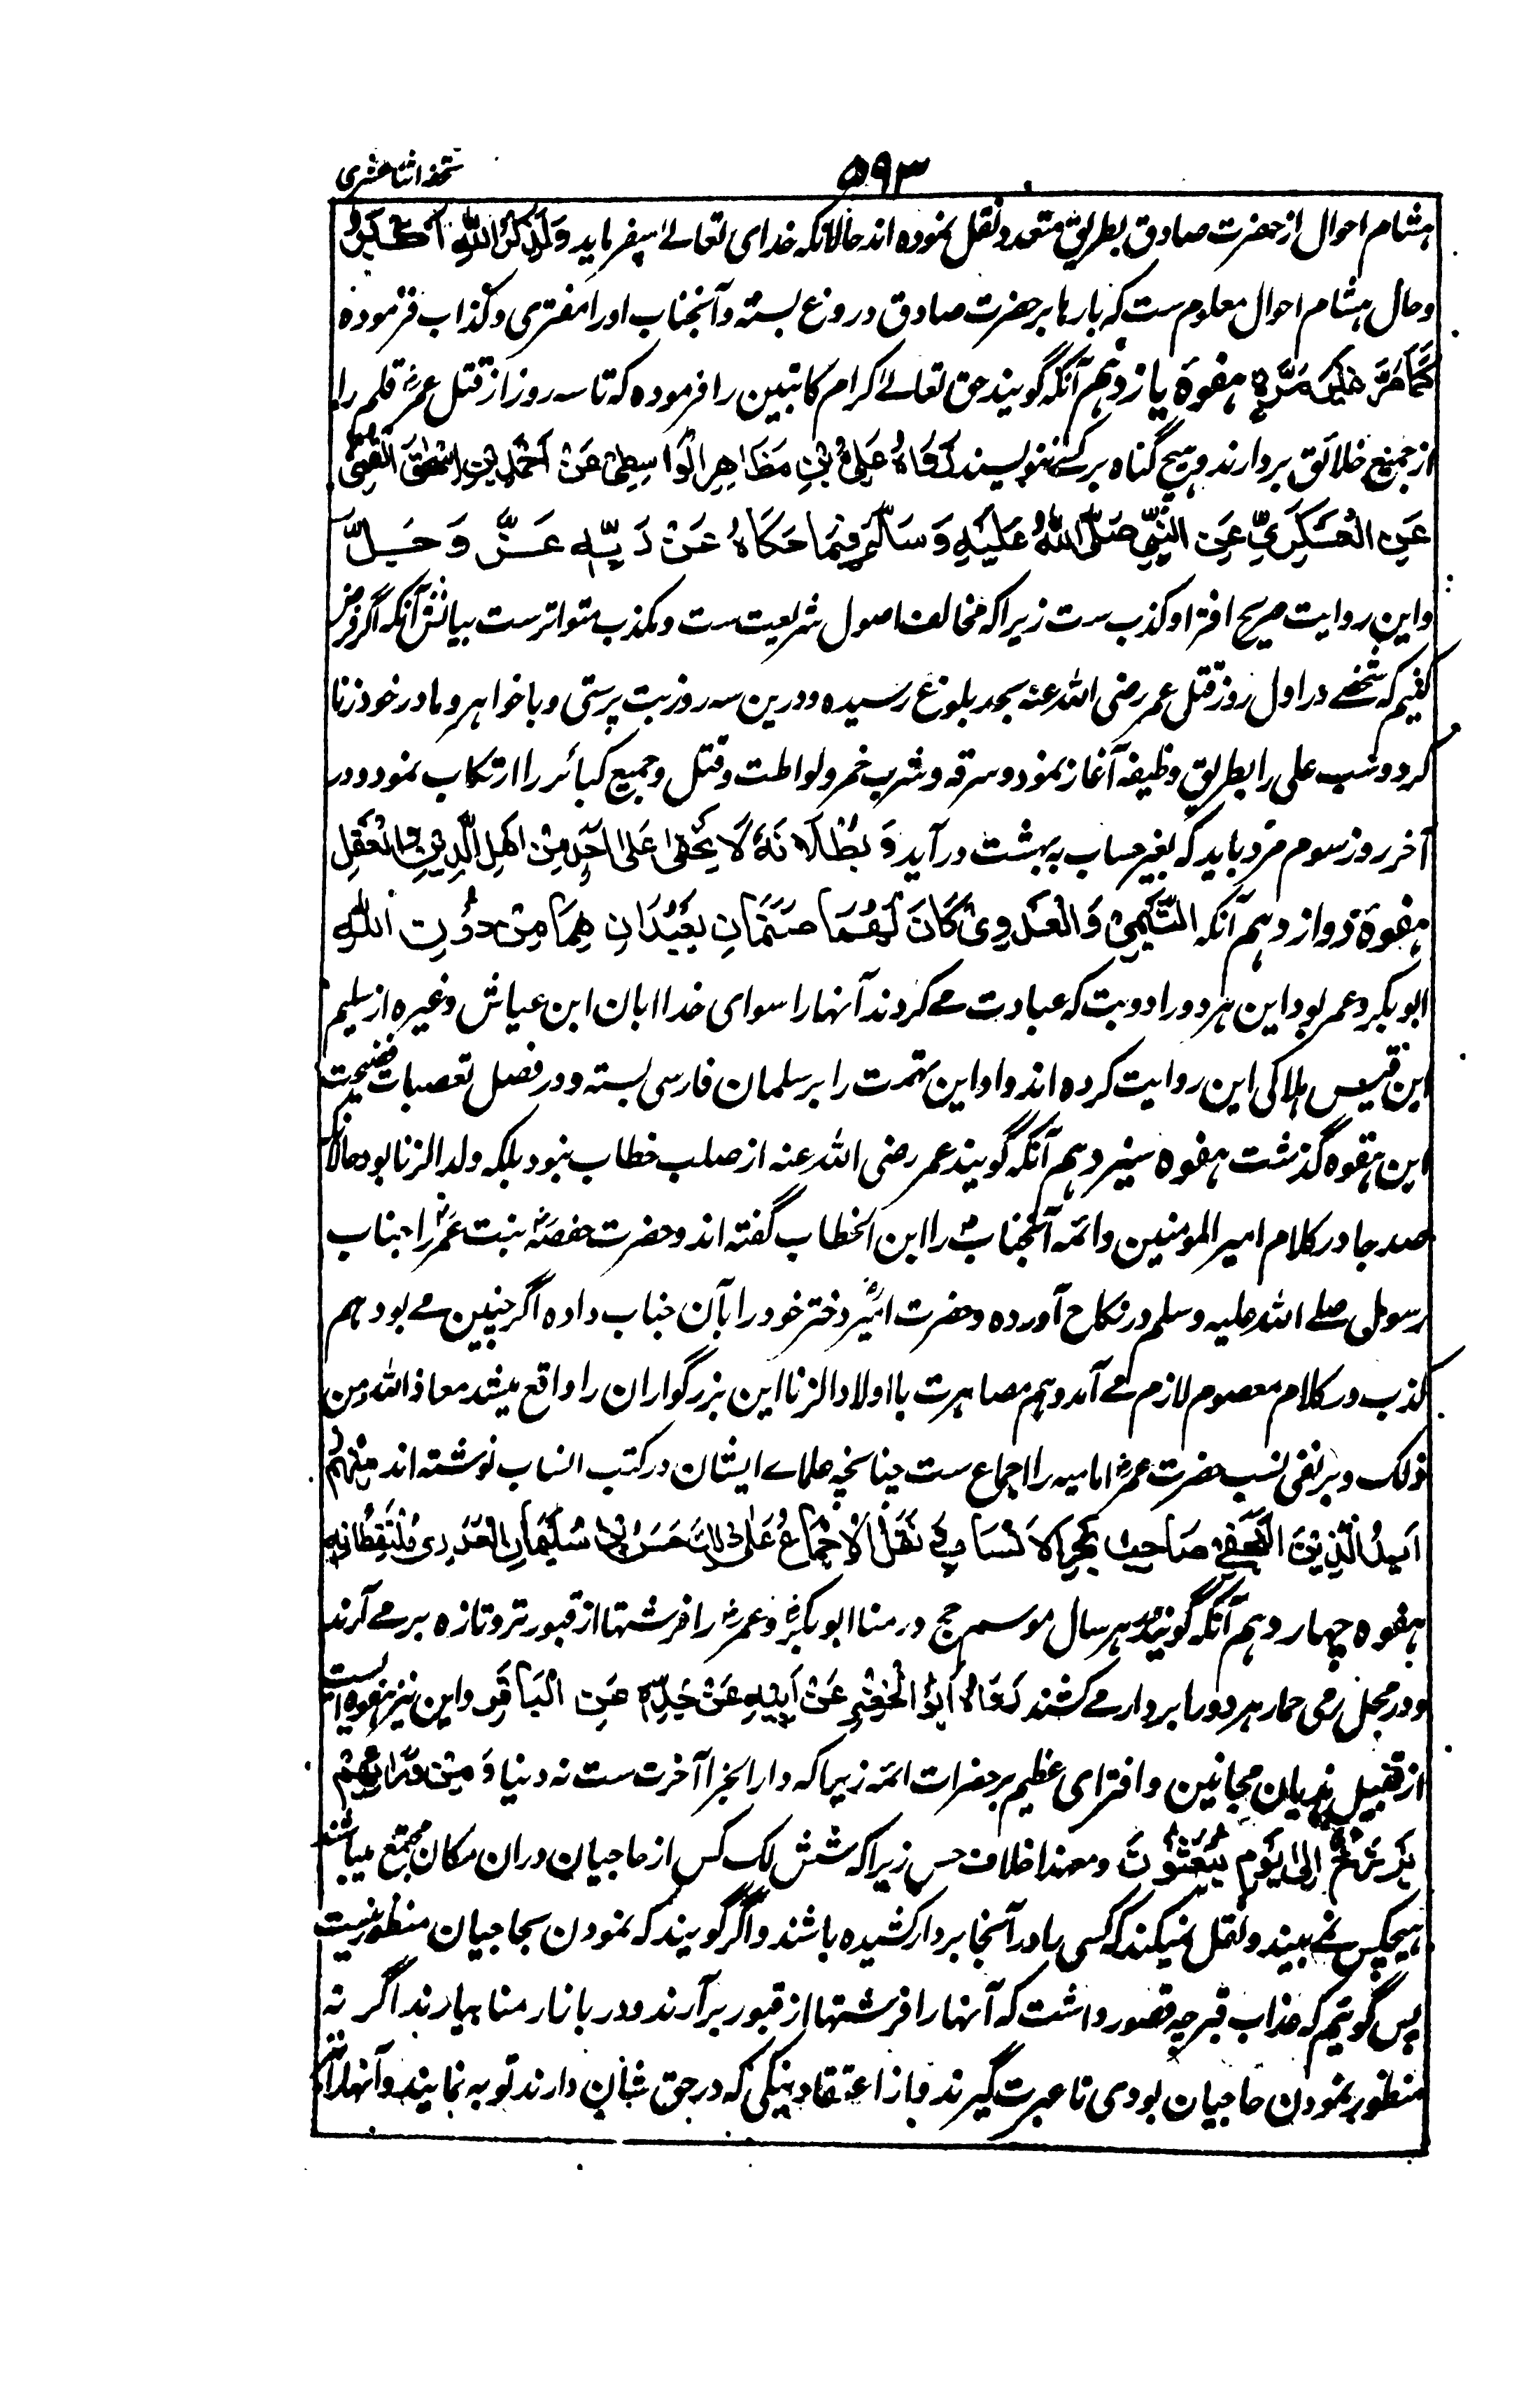 ۵۹۳
تحفه اثنا عشری
هشام احوال از حضرت صادق بطریق متعدد نقل نموده اند حالانکه خدای تعالے میفرماید وَلَذِكْرُ اللّٰهِ اَكْبَرُ
و حال هشام احوال معلوم ست که بارها بر حضرت صادق دروغ بسته و آنجناب او را مفتری و کذاب فرموده
كَمَا مَرَّ غَيْرَ مَرَّةٍ هفوۀ یازدهم آنکه گویند حق تعالےٰ کرام کاتبین را فرموده که تا سه روز از قتل عمرؓ قلم را
از جمیع خلائق بردارند و هیچ گناه بر کسے ننویسند رَوَاهُ عَلِيُّ بْنُ مَظَاهِرِ الْوَاسِطِيُّ عَنْ اَحْمَدَ بْنِ اِسْحٰقَ الْقُمِّيِّ
عَنِ الْعَسْكَرِيِّ عَنِ النَّبِيِّ صَلَّى اللّٰهُ عَلَيْهِ وَسَلَّمَ فِيْمَا حَكَاهُ عَنْ رَبِّهٖ عَزَّ وَجَلَّ
و این روایت صریح افترا و کذب ست زیرا که مخالف اصول شریعت ست و مکذب متواترست بیانش آنکه اگر فرض
کنیم که شخصے در اول روز قتل عمر رضی الله عنه بحد بلوغ رسیده و درین سه روز بت پرستی و با خواهر و مادر خود زنا
کرد و سب علی را بطریق وظیفه آغاز نمود و سرقه و شرب خمر و لواطت و قتل و جمیع کبائر را ارتکاب نمود و در
آخر روز سوم مرد باید که بغیر حساب به بهشت در آید وَ بُطْلَانُهٗ لَا يَخْفٰى عَلٰى اَحَدٍ مِنْ اَهْلِ الدِّيْنِ وَالْعَقْلِ
هفوۀ دوازدهم آنکه التَّيْمِيُّ وَالْعَدَوِيُّ كَانَ لَهُمَا صَنَمَانِ يَعْبُدَانِهِمَا مِنْ دُوْنِ اللّٰهِ
ابوبکر و عمر بود این هر دو را دو بت که عبادت مے کردند آنها را سوای خدا ابان ابن عیاش و غیره از سلیم
ابن قیس هلالی این روایت کرده اند و او این تهمت را بر سلمان فارسی بسته و در فصل تعصبات فضیحت
این هفوه گذشت هفوه سیزدهم آنکه گویند عمر رضی الله عنه از صلب خطاب نبود بلکه ولد الزنا بود حالانکه
صد جا در کلام امیر المومنین و ائمه آنجنابؓ را ابن الخطاب گفته اند و حضرت حفصهؓ بنت عمرؓ را جناب
رسول صلے الله علیه وسلم در نکاح آورده و حضرت امیرؓ دختر خود را بآن جناب داده اگر چنین مے بود هم
کذب در کلام معصوم لازم مے آمد و هم مصاهرت با اولاد الزنا این بزرگواران را واقع میشد معاذ الله من
ذلک و بر نفی نسب حضرت عمرؓ امامیه را اجماع ست چنانچه علماے ایشان در کتب انساب نوشته اند مِنْهُمْ
هفوه چهاردهم آنکه گویند هر سال موسم حج در منا ابوبکرؓ و عمرؓ را فرشتها از قبور تر و تازه بر مے آرند
و در محل رمی جمار هر دو را بردار مے کشند رَوَاهُ اَبُو الْخَضِرِ عَنْ اَبِيْهِ عَنْ جَدِّهٖ عَنِ الْبَاقِرِ و این نیز هفوه ایست
از قبیل هذیان مجانین و افترای عظیم بر حضرات ائمه زیرا که دار الجزا آخرت ست نه دنیا وَ مِنْ وَّرَائِهِمْ
بَرْزَخٌ اِلٰى يَوْمِ يُبْعَثُوْنَ و معهذا خلاف حس زیرا که شش لک کس از حاجیان دران مکان مجتمع میباشند
هیچکس نمے بیند و نقل نمیکند که کسی را در آنجا بردار کشیده باشند و اگر گویند که نمودن بحاجیان منظور نیست
پس گوئیم که عذاب قبر چه قصور داشت که آنها را فرشتها از قبور برآرند و در بازار منا بیارند اگر نه
منظور نمودن حاجیان بودی تا عبرت گیرند و باز اعتقاد نیکی که در حق شان دارند توبه نمایند و آنها را